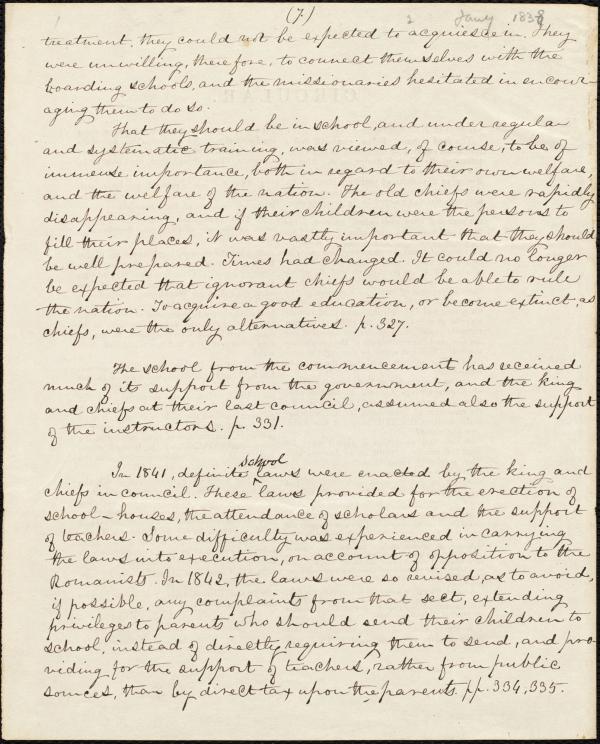 (7.) 2 Jany 1838
treatment, they could not be expected to acquiesce in. They
were unwilling, therefore, to connect themselves with the
boarding schools, and the missionaries hesitated in encour-
aging them to do so.
That they should be in school, and under regular
and systematic training, was viewed, of course, to be of
immense importance, both in regard to their own welfare,
and the welfare of the nation. The old chiefs were rapidly
disappearing, and if their children were the persons to
fill their places, it was vastly important that they should
be well prepared. Times had changed. It could no longer
be expected that ignorant chiefs would be able to rule
the nation. To acquire a good education, or become extinct, as
chiefs, were the only alternatives. p. 327.
The school from the commencement has received
much of its support from the government, and the king
and chiefs at their last council, assumed also the support
of the instructors. p. 331.
In 1841, definite school laws were enacted by the king and
chiefs in council. These laws provided for the erection of
school-houses, the attendance of scholars and the support
of teachers. Some difficulty was experienced in carrying
the laws into execution, on account of opposition to the
Romanists. In 1842, the laws were so revised, as to avoid,
if possible, any complaints from that sect, extending
privileges to parents who should send their children to
school, instead of directly requiring them to send, and pro-
viding for the support of teachers, rather from public
sources, than by direct tax upon the parents. pp. 334, 335.